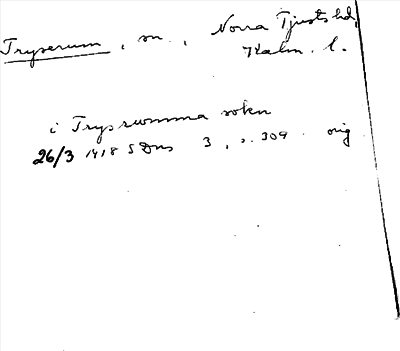 Tryserum, sn., Norra Tjusts hd,
Kalm. l.
i Trysrwmma sokn
26/3 1418 SDns 3, s. 309 orig